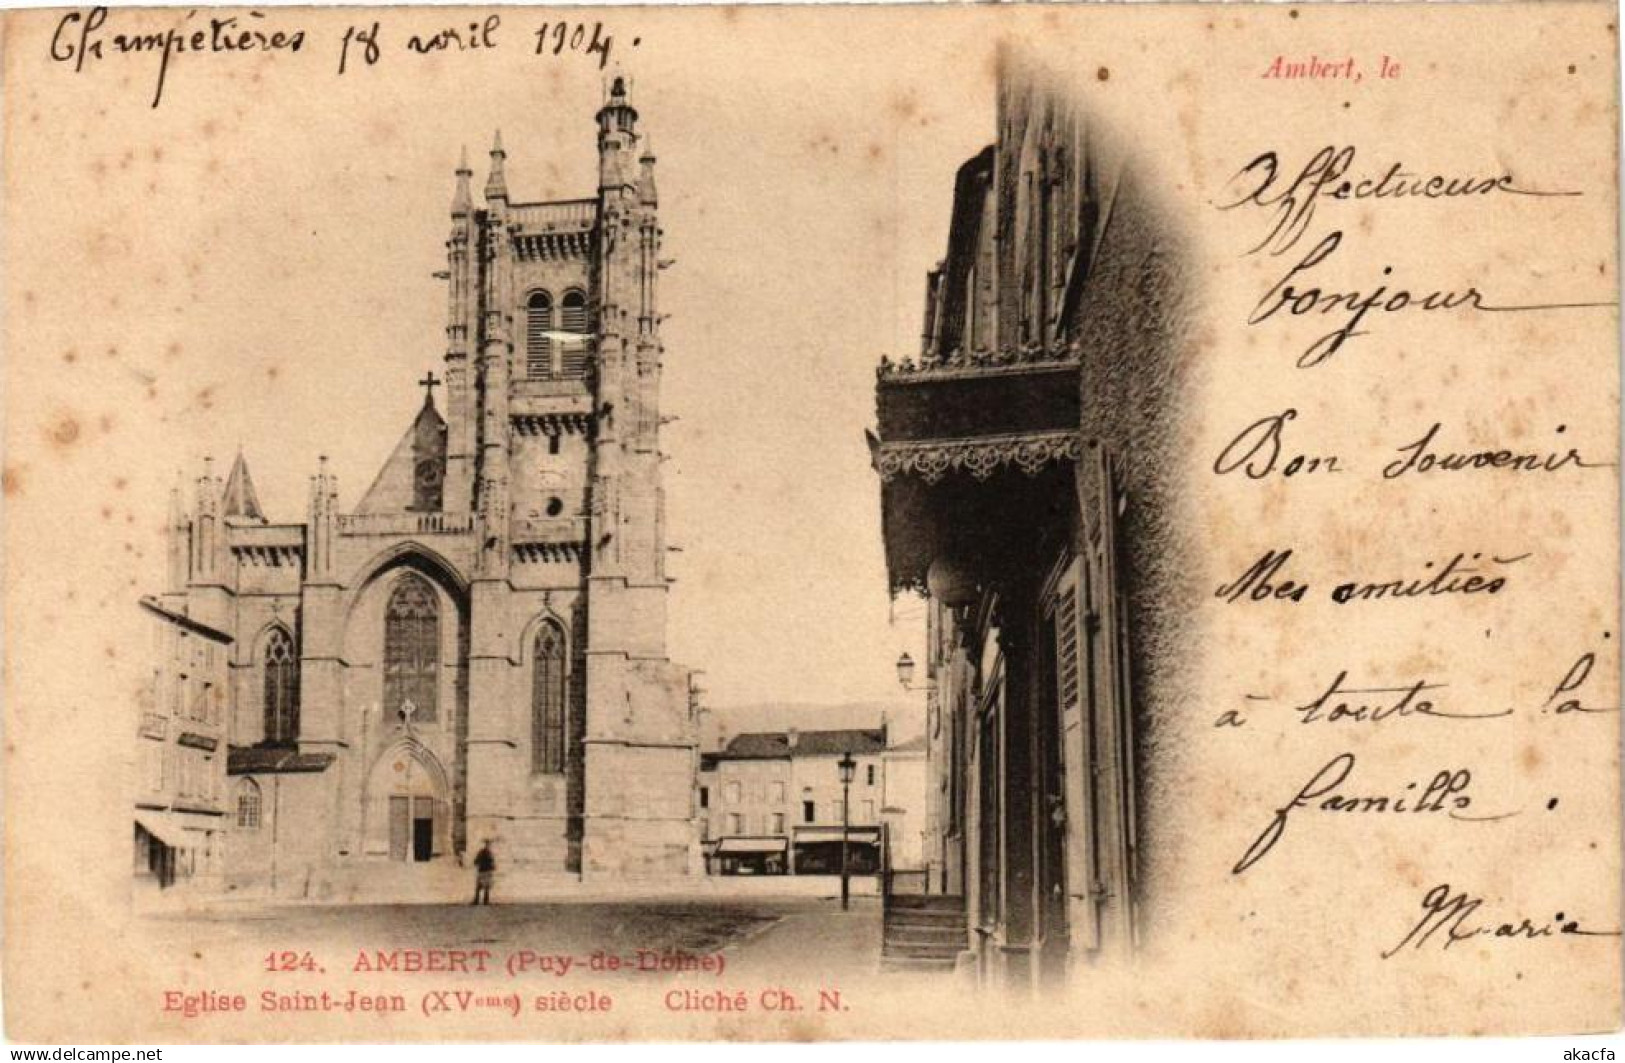 Champétières 18 avril 1904.
Ambert, le
Affectueux
bonjour
Bon Souvenir
Mes amitiés
à toute la
famille.
Marie
124. AMBERT (Puy-de-Dôme)
Eglise Saint-Jean (XVeme) siècle Cliché Ch. N.
www.delcampe.net
akacfa